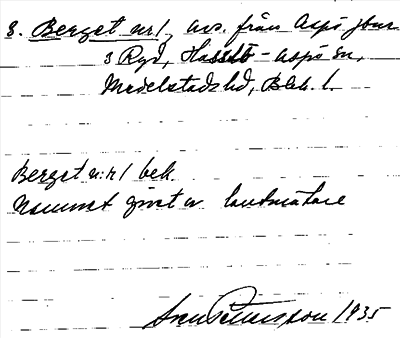 8. Berget nr 1, avs. från Aspö jbnr
3 Ryd, Hasslö-Aspö sn,
Medelstads hd, Blek. l.
Berget n:r 1 bek.
Namnet givet av lantmätare
Sven Pettersson 1935